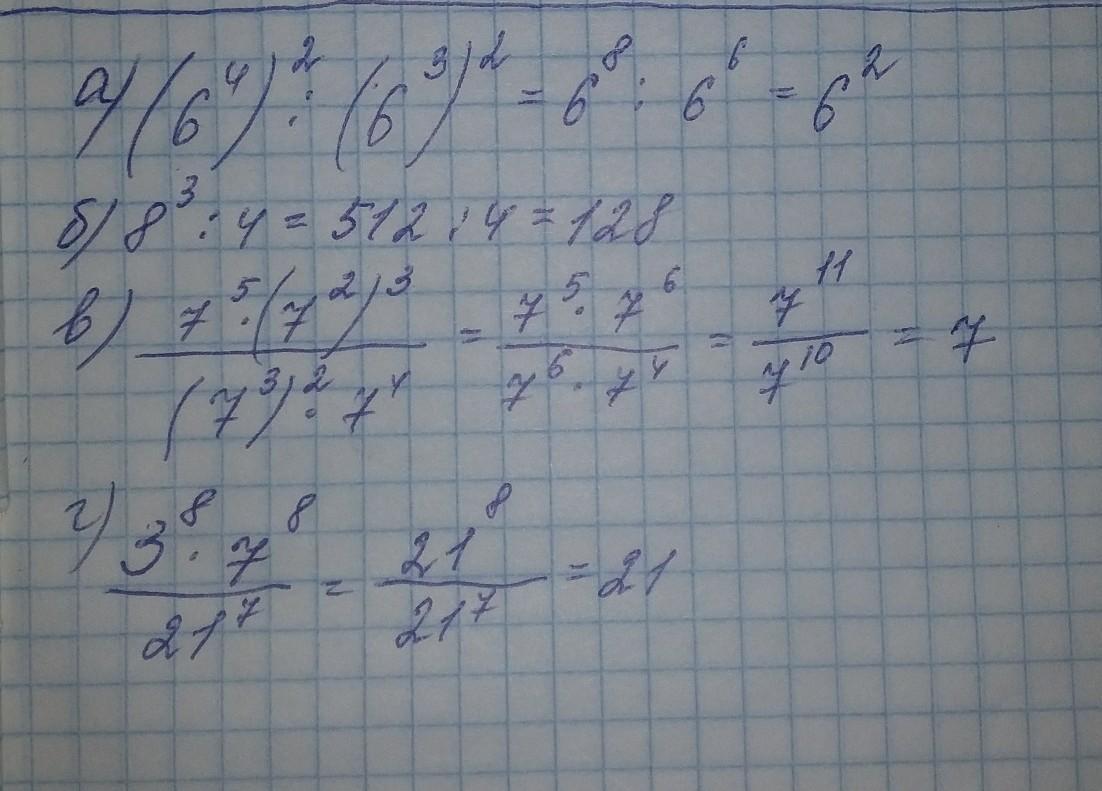 а) (6⁴)² : (6³)² = 6⁸ : 6⁶ = 6²
б) 8³ : 4 = 512 : 4 = 128
в) (7⁵ · (7²)³) / ((7³)² · 7⁴) = (7⁵ · 7⁶) / (7⁶ · 7⁴) = 7¹¹ / 7¹⁰ = 7
г) (3⁸ · 7⁸) / 21⁷ = 21⁸ / 21⁷ = 21